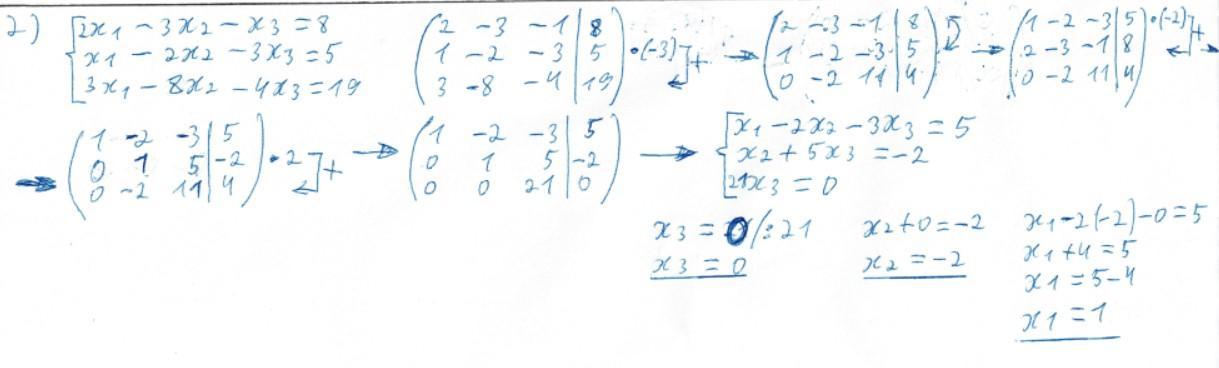 2) { 2x1 - 3x2 - x3 = 8
x1 - 2x2 - 3x3 = 5
3x1 - 8x2 - 4x3 = 19
( 2 -3 -1 | 8
1 -2 -3 | 5
3 -8 -4 | 19 ) •(-3) ] +
→ ( 2 -3 -1 | 8
1 -2 -3 | 5
0 -2 11 | 4 )
→ ( 1 -2 -3 | 5
2 -3 -1 | 8
0 -2 11 | 4 ) •(-2) ] + →
→ ( 1 -2 -3 | 5
0 1 5 | -2
0 -2 11 | 4 ) •2 ] +
→ ( 1 -2 -3 | 5
0 1 5 | -2
0 0 21 | 0 )
→ { x1 - 2x2 - 3x3 = 5
x2 + 5x3 = -2
21x3 = 0
x3 = 0 /:21
x3 = 0
x2 + 0 = -2
x2 = -2
x1 - 2(-2) - 0 = 5
x1 + 4 = 5
x1 = 5 - 4
x1 = 1